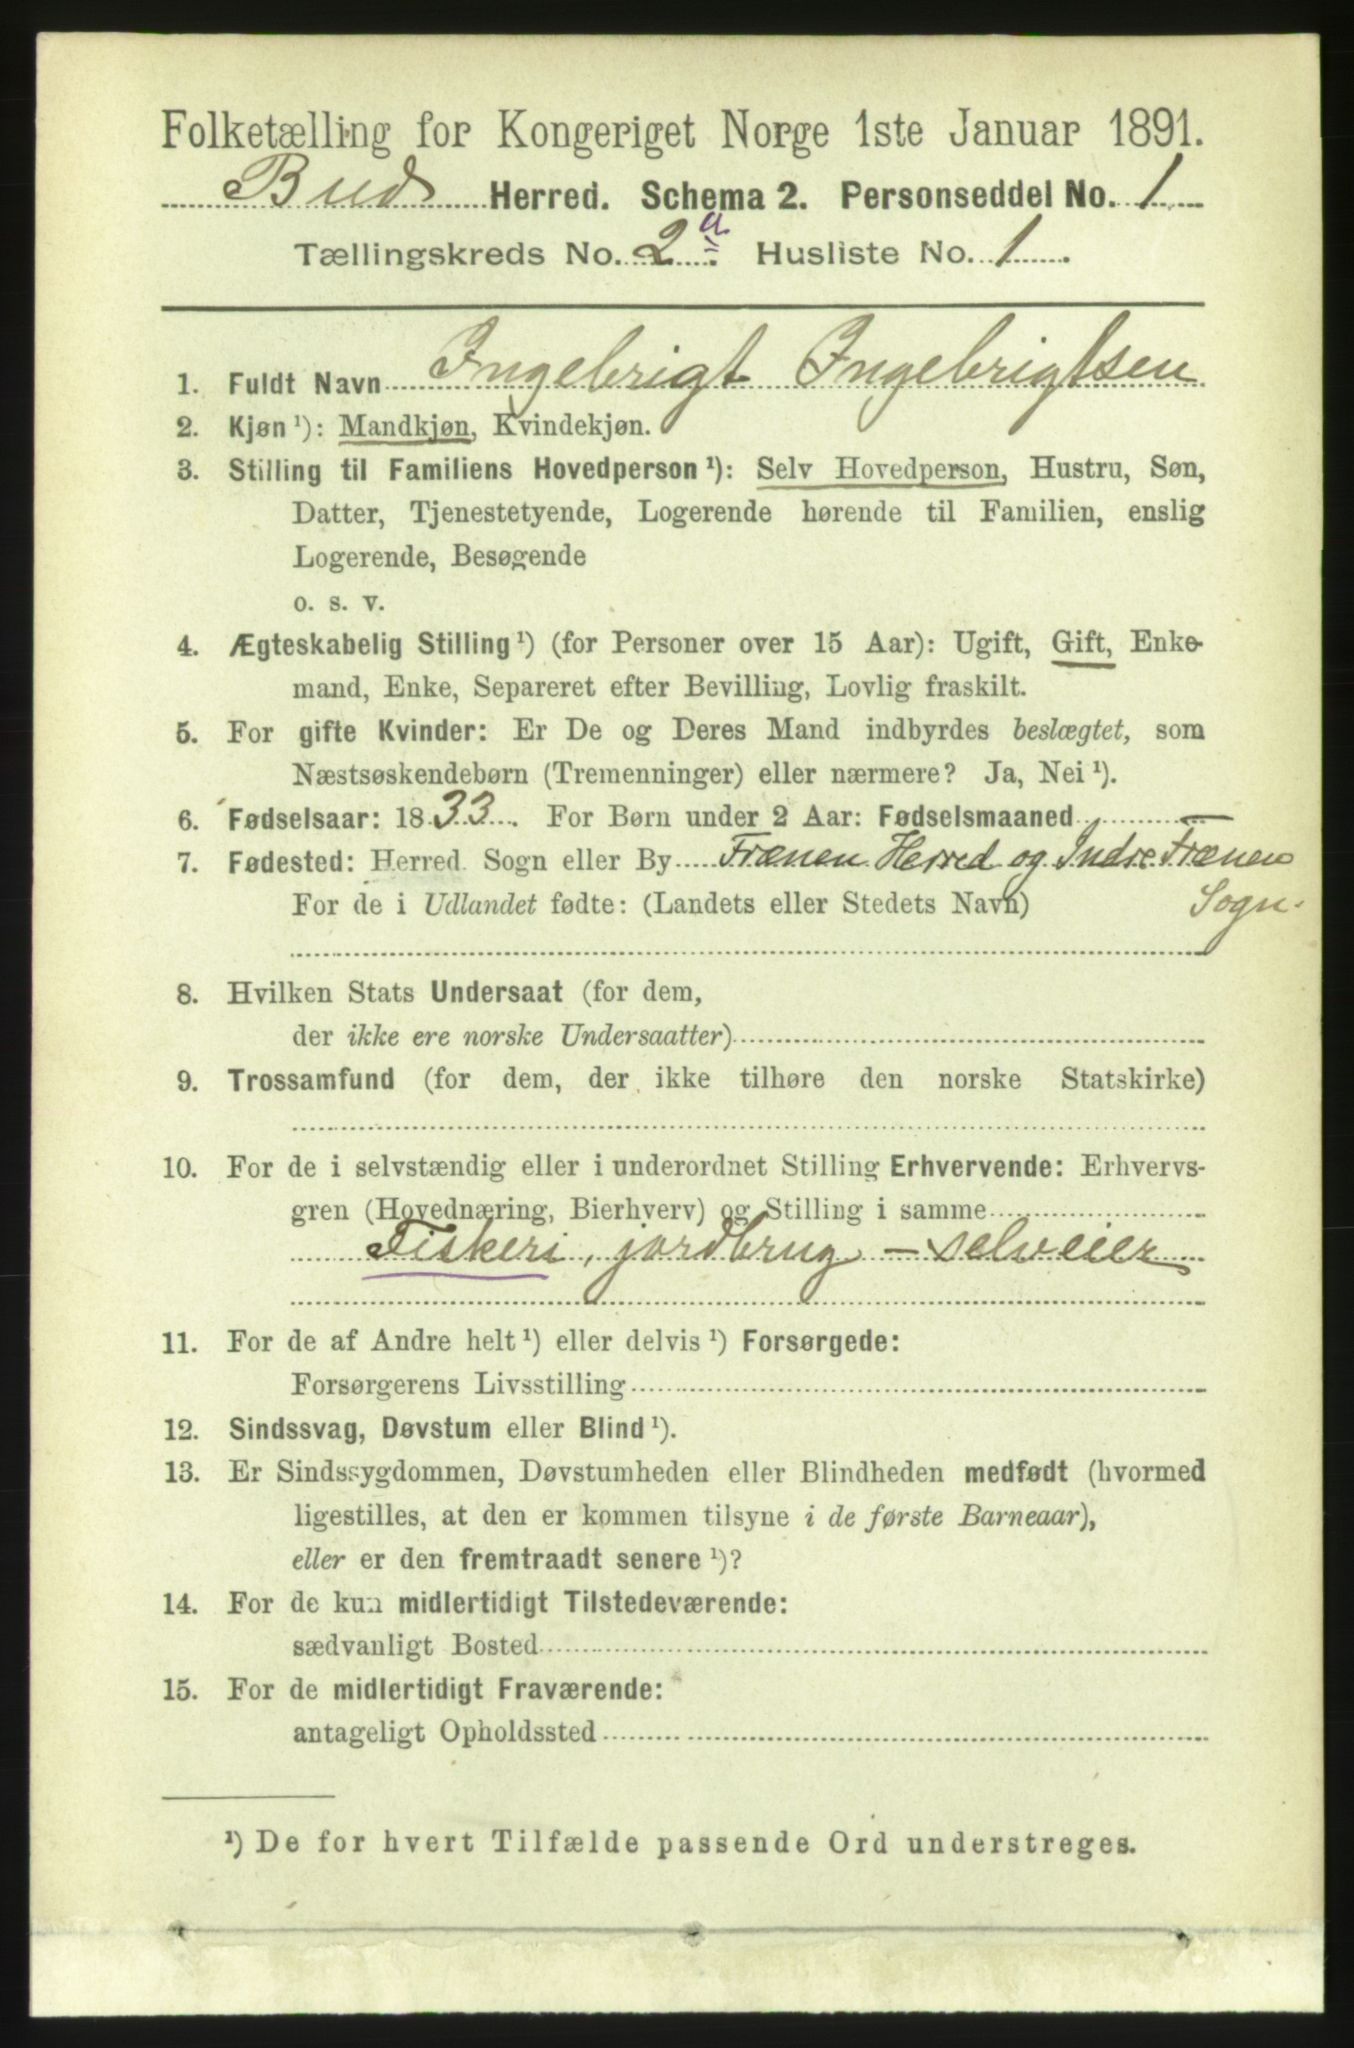 Folketælling for Kongeriget Norge 1ste Januar 1891.
Bud Herred. Schema 2. Personseddel No. 1
Tællingskreds No. 2 a. Husliste No. 1.
1. Fuldt Navn Ingebrigt Ingebrigtsen
2. Kjøn ¹): Mandkjøn, Kvindekjøn.
3. Stilling til Familiens Hovedperson ¹): Selv Hovedperson, Hustru, Søn,
Datter, Tjenestetyende, Logerende hørende til Familien, enslig
Logerende, Besøgende
o. s. v.
4. Ægteskabelig Stilling ¹) (for Personer over 15 Aar): Ugift, Gift, Enke-
mand, Enke, Separeret efter Bevilling, Lovlig fraskilt.
5. For gifte Kvinder: Er De og Deres Mand indbyrdes beslægtet, som
Næstsøskendebørn (Tremenninger) eller nærmere? Ja, Nei ¹).
6. Fødselsaar: 1833. For Børn under 2 Aar: Fødselsmaaned
7. Fødested: Herred Sogn eller By Frænen Herred og Indre Frænen
For de i Udlandet fødte: (Landets eller Stedets Navn) Sogn.
8. Hvilken Stats Undersaat (for dem,
der ikke ere norske Undersaatter)
9. Trossamfund (for dem, der ikke tilhøre den norske Statskirke)
10. For de i selvstændig eller i underordnet Stilling Erhvervende: Erhvervs-
gren (Hovednæring, Bierhverv) og Stilling i samme
Fiskeri, jordbrug – selveier
11. For de af Andre helt ¹) eller delvis ¹) Forsørgede:
Forsørgerens Livsstilling
12. Sindssvag, Døvstum eller Blind ¹).
13. Er Sindssygdommen, Døvstumheden eller Blindheden medfødt (hvormed
ligestilles, at den er kommen tilsyne i de første Barneaar),
eller er den fremtraadt senere ¹)?
14. For de kun midlertidigt Tilstedeværende:
sædvanligt Bosted
15. For de midlertidigt Fraværende:
antageligt Opholdssted
¹) De for hvert Tilfælde passende Ord understreges.